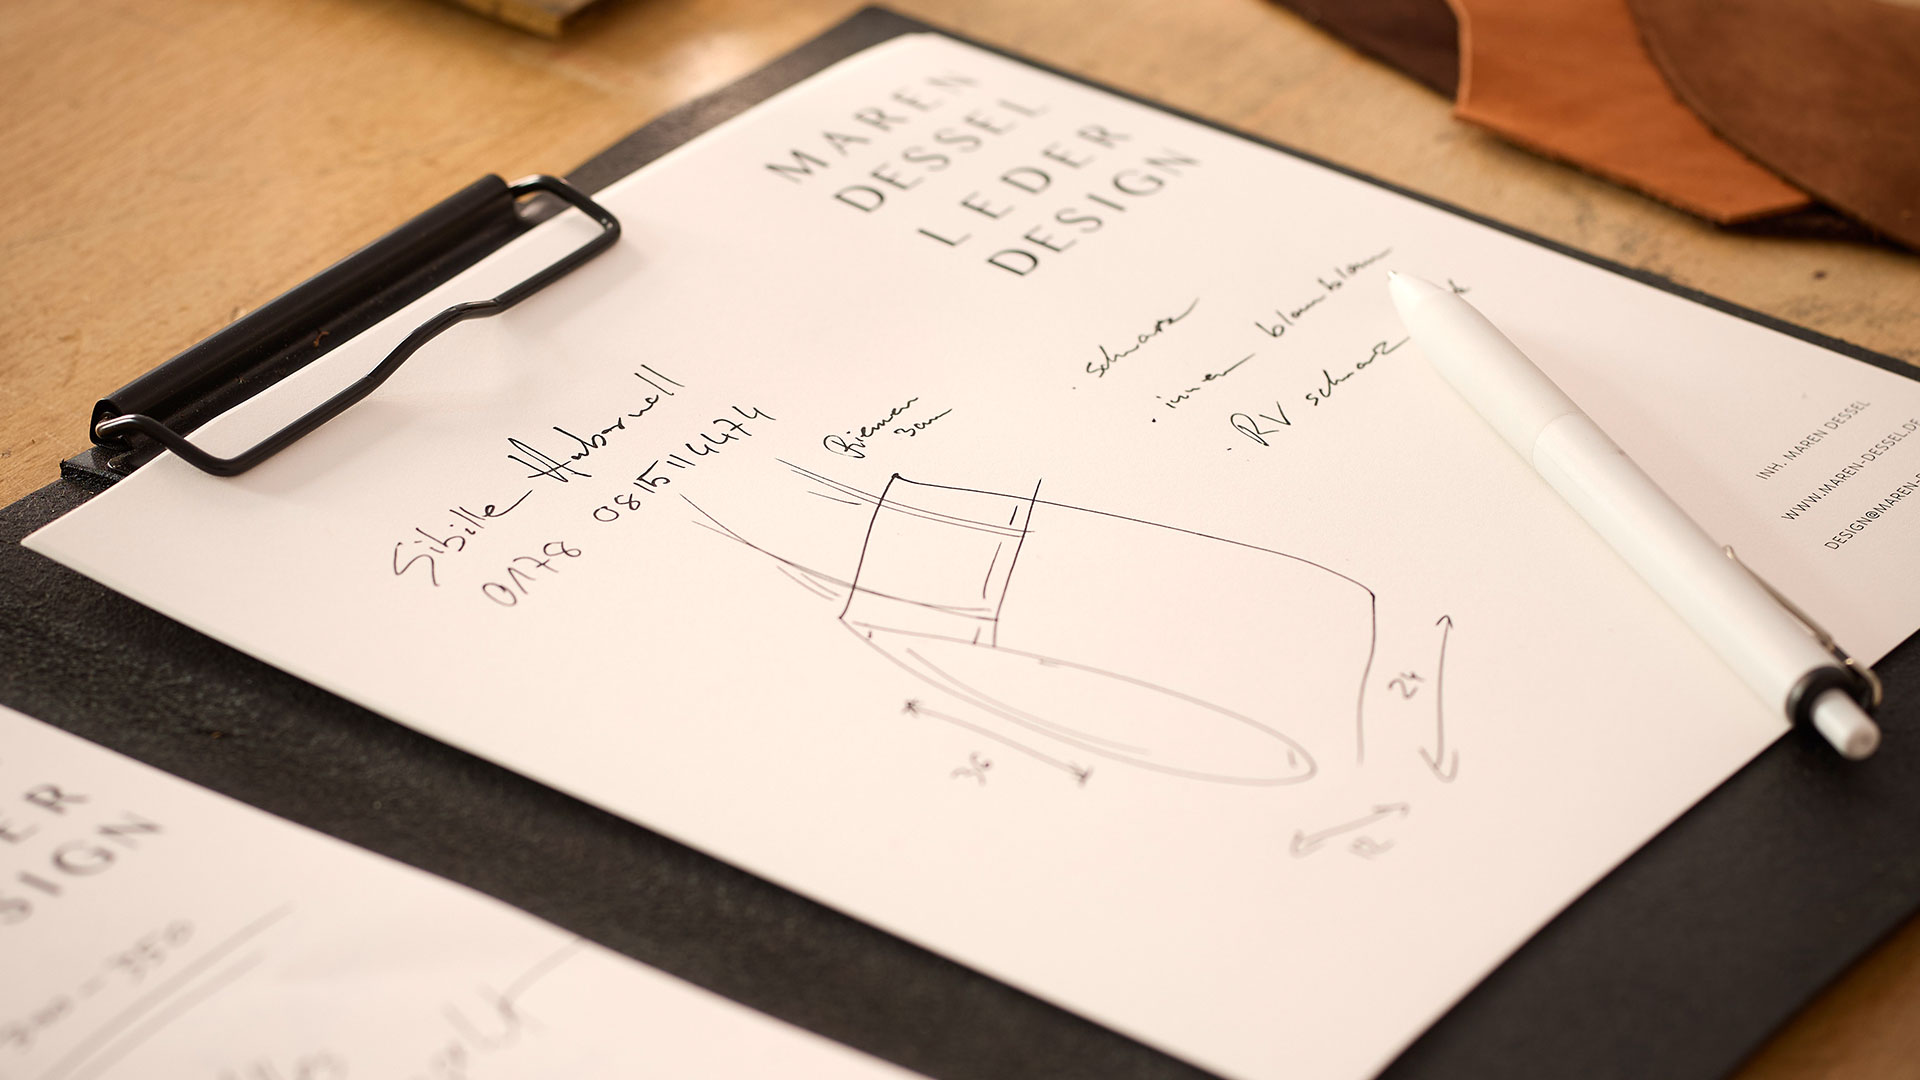 MAREN
DESSEL
LEDER
DESIGN
· schwarz
· innen
· RV schwarz
Sibille
0178 0815114474
Riemen
3cm
36
24
12
INH. MAREN DESSEL
WWW.MAREN-DESSEL.DE
DESIGN@MAREN-
ER
SIGN